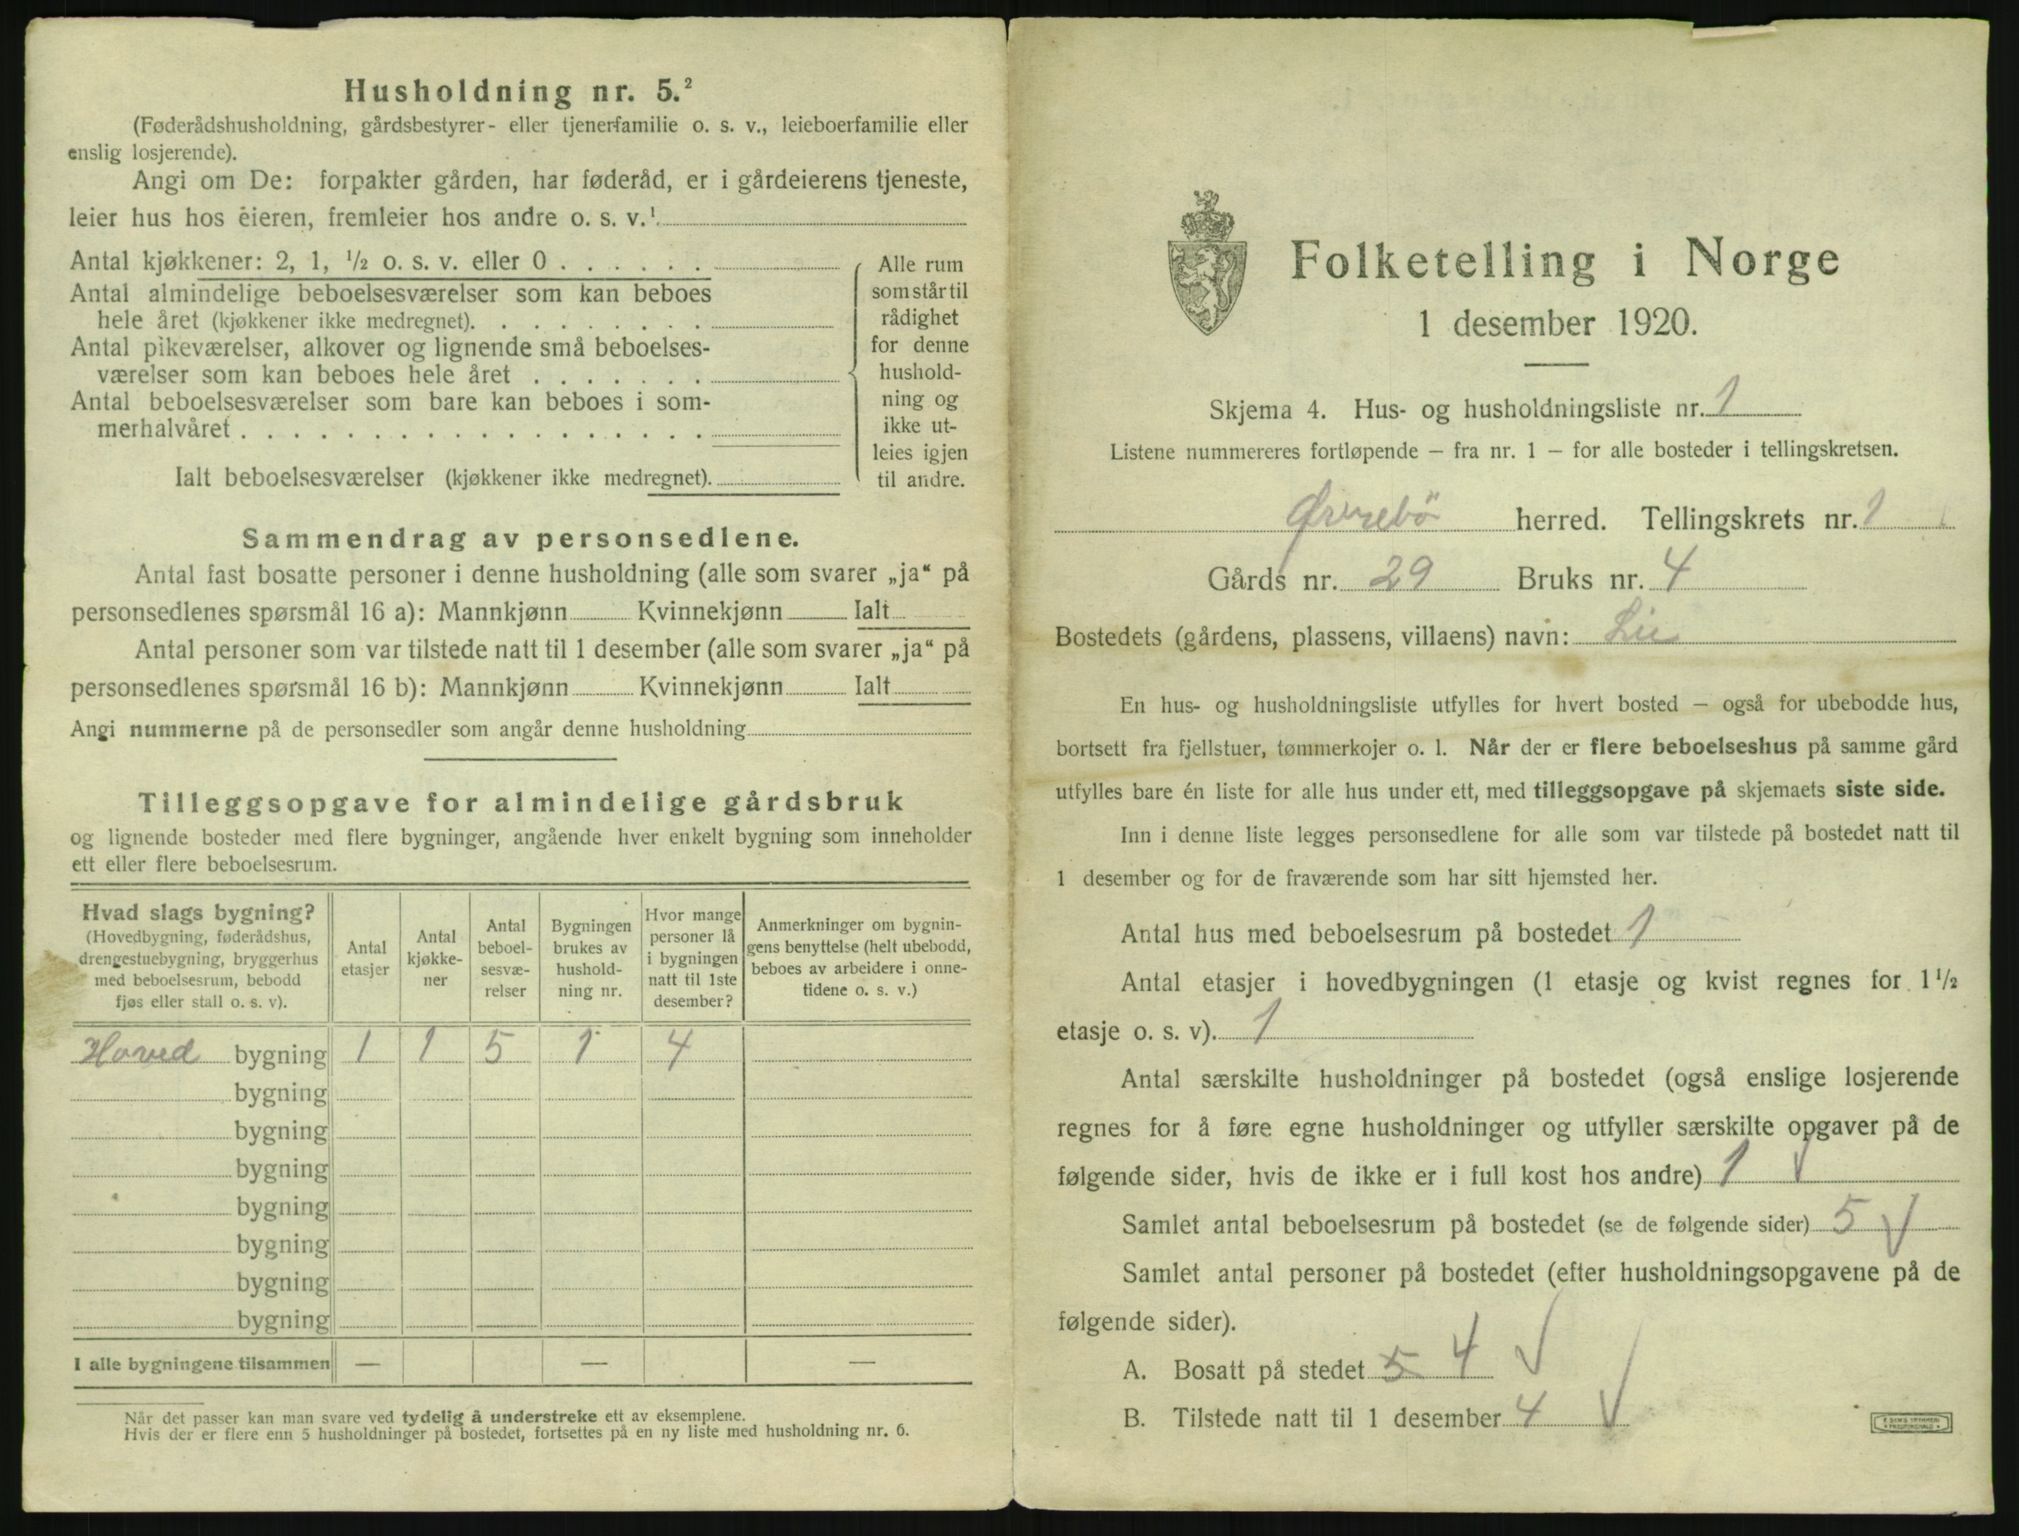 Husholdning nr. 5.²
(Føderådshusholdning, gårdsbestyrer- eller tjenerfamilie o. s. v., leieboerfamilie eller
enslig losjerende).
Angi om De: forpakter gården, har føderåd, er i gårdeierens tjeneste,
leier hus hos eieren, fremleier hos andre o. s. v.¹
Antal kjøkkener: 2, 1, ½ o. s. v. eller 0 . . . . . .
Antal almindelige beboelsesværelser som kan beboes
hele året (kjøkkener ikke medregnet). . . . . . . . .
Antal pikeværelser, alkover og lignende små beboelses-
værelser som kan beboes hele året . . . . . . .
Antal beboelsesværelser som bare kan beboes i som-
merhalvåret . . . . . . . . . . . . . . . . . .
Ialt beboelsesværelser (kjøkkener ikke medregnet).
Alle rum
som står til
rådighet
for denne
hushold-
ning og
ikke ut-
leies igjen
til andre.
Sammendrag av personsedlene.
Antal fast bosatte personer i denne husholdning (alle som svarer „ja“ på
personsedlenes spørsmål 16 a): Mannkjønn Kvinnekjønn Ialt
Antal personer som var tilstede natt til 1 desember (alle som svarer „ja“ på
personsedlenes spørsmål 16 b): Mannkjønn Kvinnekjønn Ialt
Angi nummerne på de personsedler som angår denne husholdning
Tilleggsopgave for almindelige gårdsbruk
og lignende bosteder med flere bygninger, angående hver enkelt bygning som inneholder
ett eller flere beboelsesrum.
Hvad slags bygning?
(Hovedbygning, føderådshus,
drengestuebygning, bryggerhus
med beboelsesrum, bebodd
fjøs eller stall o. s. v).
Antal
etasjer
Antal
kjøkke-
ner
Antal
beboel-
sesvæ-
relser
Bygningen
brukes av
hushold-
ning nr.
Hvor mange
personer lå
i bygningen
natt til 1ste
desember?
Anmerkninger om bygnin-
gens benyttelse (helt ubebodd,
beboes av arbeidere i onne-
tidene o. s. v.)
Hoved bygning 1 1 5 1 4
bygning
bygning
bygning
bygning
bygning
bygning
bygning
I alle bygningene tilsammen — — —
Når det passer kan man svare ved tydelig å understreke ett av eksemplene.
Hvis der er flere enn 5 husholdninger på bostedet, fortsettes på en ny liste med husholdning nr. 6.
Folketelling i Norge
1 desember 1920.
Skjema 4. Hus- og husholdningsliste nr. 1
Listene nummereres fortløpende – fra nr. 1 – for alle bosteder i tellingskretsen.
Øvrebö herred. Tellingskrets nr. 1
Gårds nr. 29 Bruks nr. 4
Bostedets (gårdens, plassens, villaens) navn: Lie
En hus- og husholdningsliste utfylles for hvert bosted – også for ubebodde hus,
bortsett fra fjellstuer, tømmerkojer o. l. Når der er flere beboelseshus på samme gård
utfylles bare én liste for alle hus under ett, med tilleggsopgave på skjemaets siste side.
Inn i denne liste legges personsedlene for alle som var tilstede på bostedet natt til
1 desember og for de fraværende som har sitt hjemsted her.
Antal hus med beboelsesrum på bostedet 1
Antal etasjer i hovedbygningen (1 etasje og kvist regnes for 1½
etasje o. s. v). 1
Antal særskilte husholdninger på bostedet (også enslige losjerende
regnes for å føre egne husholdninger og utfyller særskilte opgaver på de
følgende sider, hvis de ikke er i full kost hos andre) 1 √
Samlet antal beboelsesrum på bostedet (se de følgende sider) 5 √
Samlet antal personer på bostedet (efter husholdningsopgavene på de
følgende sider).
A. Bosatt på stedet 5 4 √
B. Tilstede natt til 1 desember 4 √